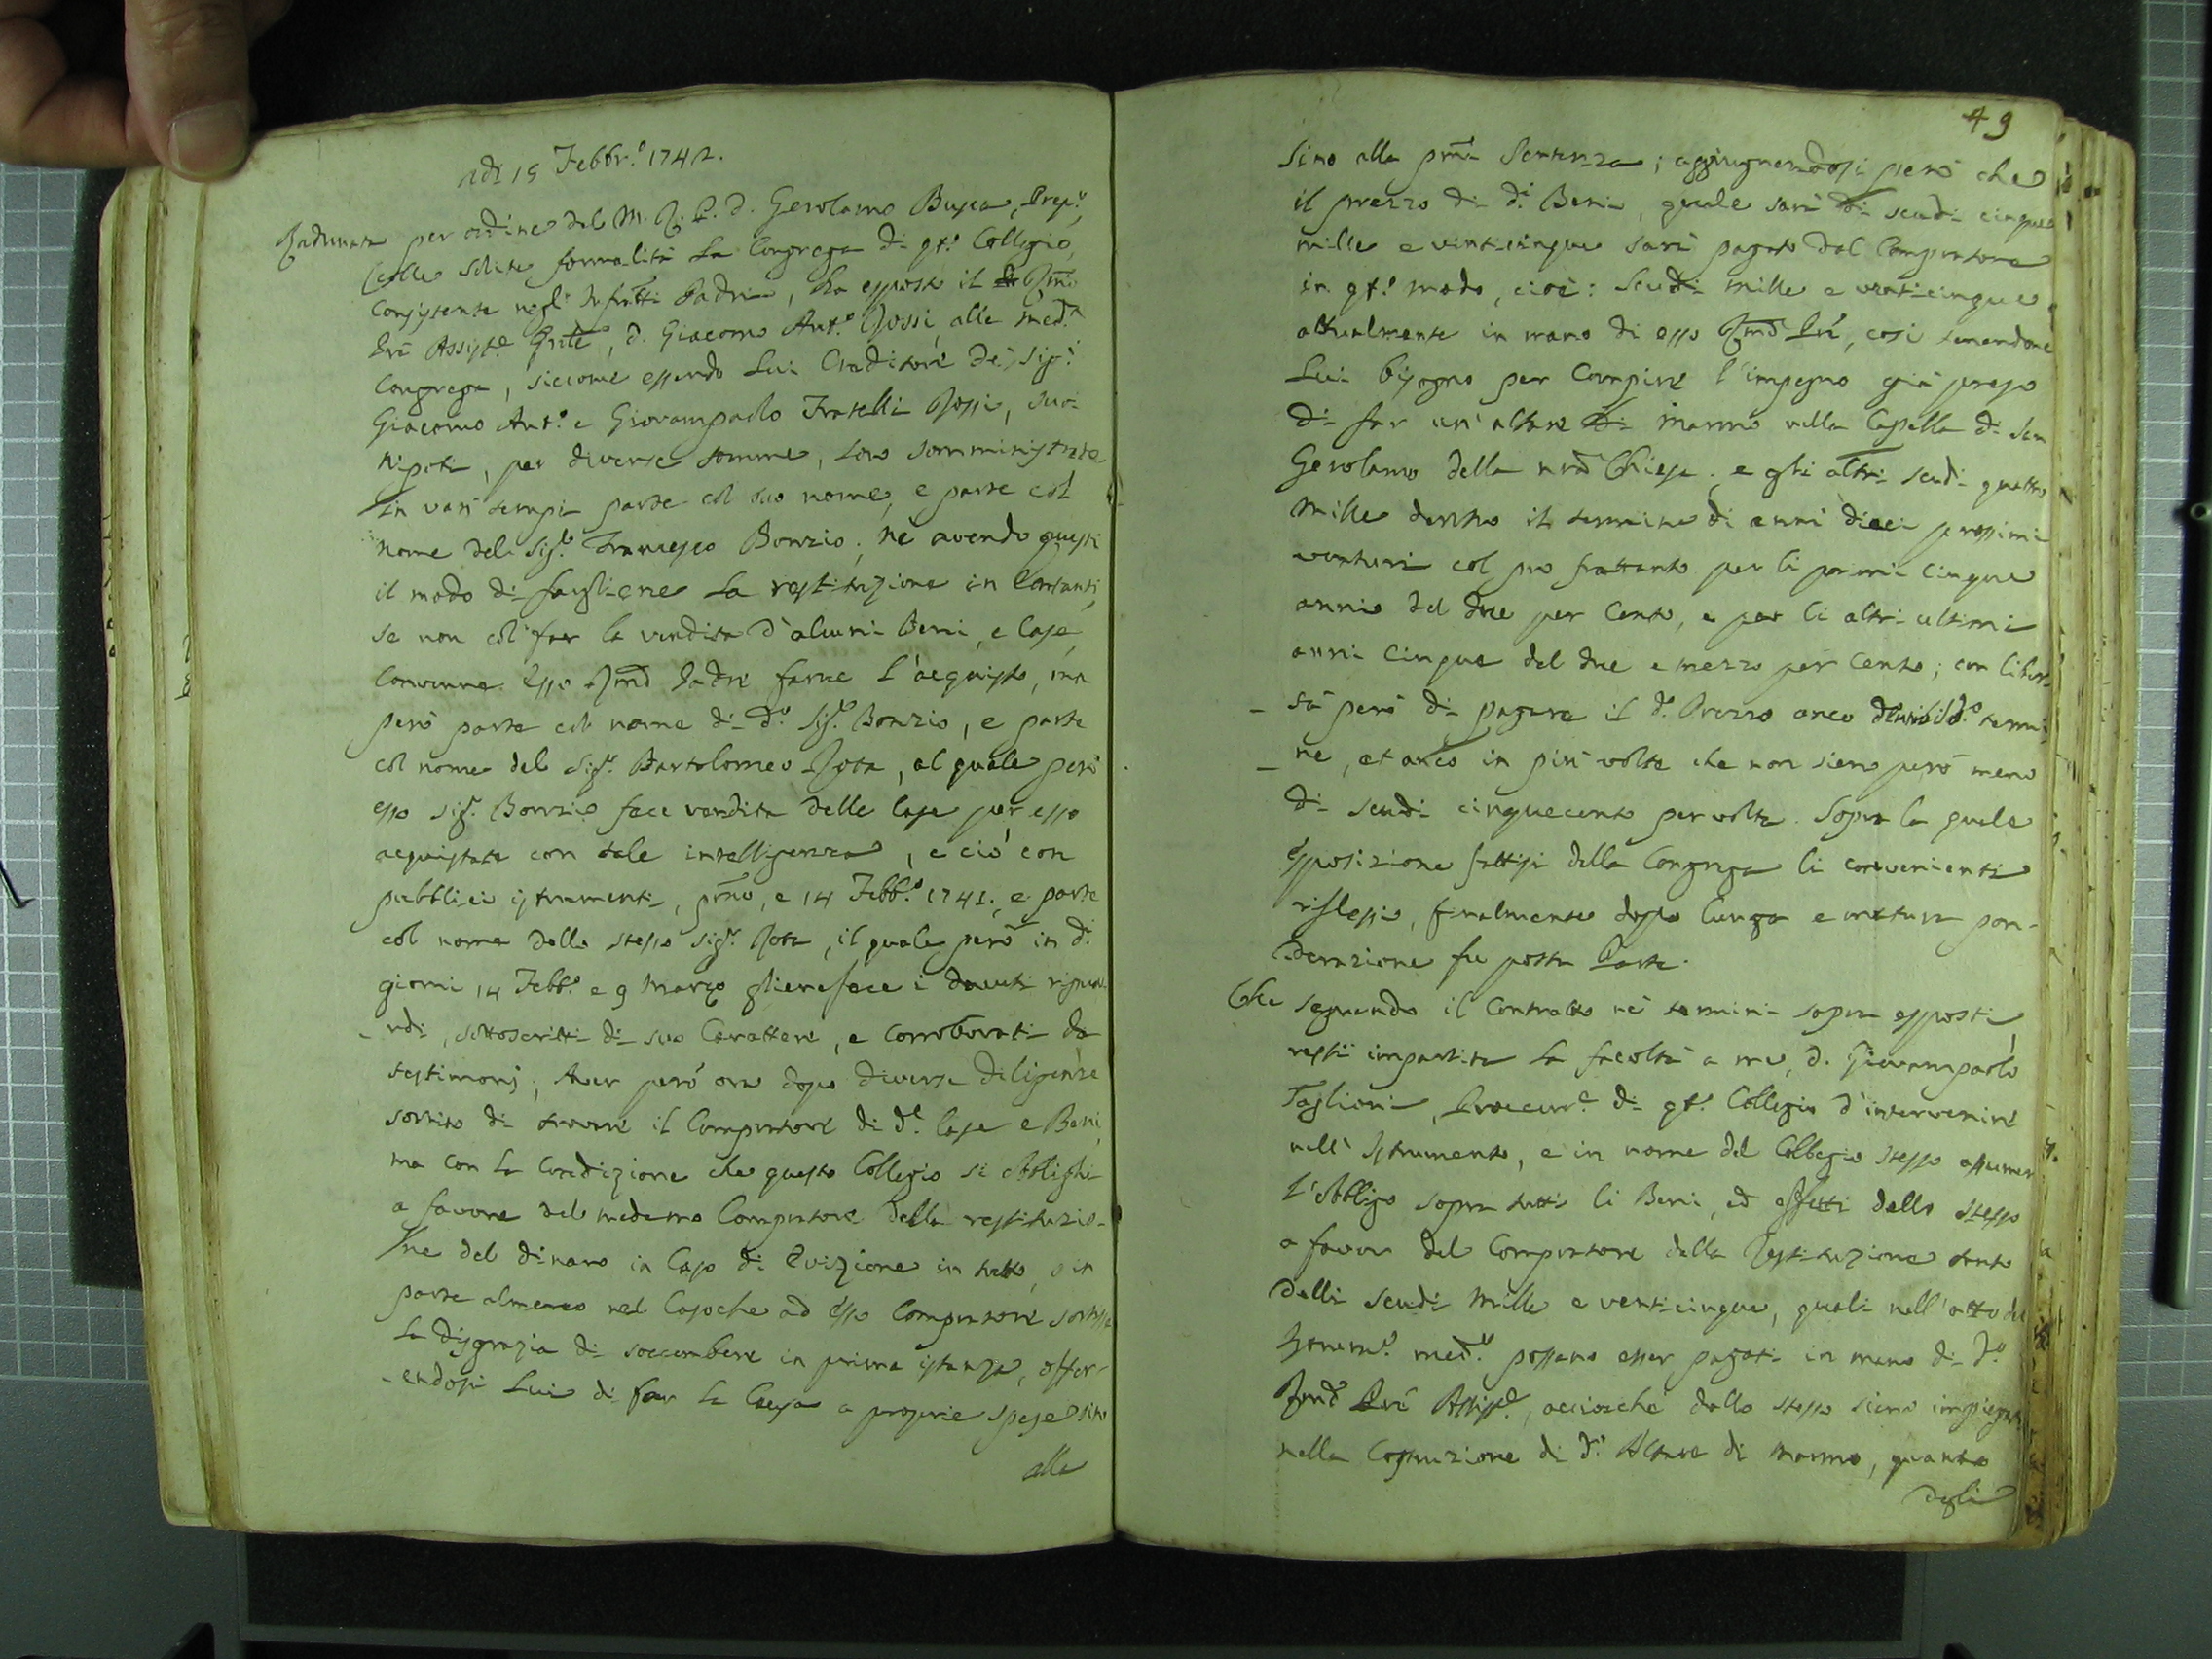 adi 15 Febbr.o 1742.
Radunata per ordine del M. R. P. d. Gerolamo Busca, Prep.o,
colle solite formalità la Congrega di qt.o Collegio,
consistente negl' infratti Padri, ha esposto il Rmo
Pre Assist.e Gnle, d. Giacomo Ant.o Rossi, alla med.a
Congrega, siccome essendo lui Creditore de' Sig.i
Giacomo Ant.o e Giovampaolo Fratelli Rossi, suoi
nipoti, per diverse somme, loro somministrate
in varj tempi parte col suo nome, e parte col
nome del Sig.r Francesco Bonzio; ne avendo questi
il modo di fargliene la restituzione in Contanti,
se non col far la vendita d'alcuni Beni, e Case,
convenne esso Rmo Padre farne l'acquisto, ma
però parte col nome di d.o Sig.r Bonzio, e parte
col nome del Sig.r Bartolomeo Rota, al quale però
esso Sig.r Bonzio fece vendita delle Case per esso
acquistate con tale intelligenza, e ciò con
pubblici istrumenti, pmo, e 14 Febb.o 1741, e parte
col nome dello stesso Sig.r Rota, il quale però in d.i
giorni 14 Febb.o e 9 Marzo gliene fece i dovuti riguar-
-rdi, sottoscritti di suo Carattere, e corroborati da
testimonj; Aver però ora dopo diverse diligenze
sortito di trovare il Compratore di d.e Case e Beni,
ma con la Condizione che questo Collegio si obblighi
a favore del medemo Compratore della restituzio-
ne del dinaro in Caso di Evizione in tutto, o in
parte almeno nel Caso che ad esso Compratore sortisse
la disgrazia di soccombere in prima istanza, offer-
-endosi lui di far la Causa a proprie spese sino
alla
49
Sino alla pma Sentenza; aggiugnendosi però che
il prezzo di d.i Beni, quale sarà di scudi cinque
mille e venticinque sarà pagato dal Compratore
in qt.o modo, cioè: Scudi mille e venticinque
attualmente in mano di esso Rmo Pre, così tenendone
lui bisogno per Compire l'impegno già preso
di far un'altare di Marmo nella Capella di San
Gerolamo della nra Chiesa; e gli altri scudi quattro
mille dentro il termine di anni dieci prossimi
venturi col pro frattanto per li primi cinque
anni del due per Cento, e per li altri ultimi
anni cinque del due e mezzo per Cento; con liber-
-tà però di pagare il d.o Prezzo anco d.o termi-
-ne, et anco in più volte che non sieno però meno
di scudi cinquecento per volta. Sopra la quale
esposizione fattisi dalla Congrega li convenienti
riflessi, finalmente dopo lunga e matura pon-
derazione fu posta Parte.
Che seguendo il Contratto ne' termini sopra esposti,
resti impartita la facoltà a me, d. Giovampaolo
Taglioni, Procur.e di qt.o Collegio d'intervenire
nell'Istrumento, e in nome del Collegio stesso assumer
l'obbligo sopra tutti li Beni, ed effetti dello stesso
a favor del Compratore della Restituzione tanto
delli scudi Mille e venticinque, quali nell'atto del
Istrum.o med.o possano esser pagati in mano di d.o
Rmo Pre Assist.e, acciocchè dallo stesso sieno impiegati
nella Costruzione di d.o Altare di marmo, quanto
degli